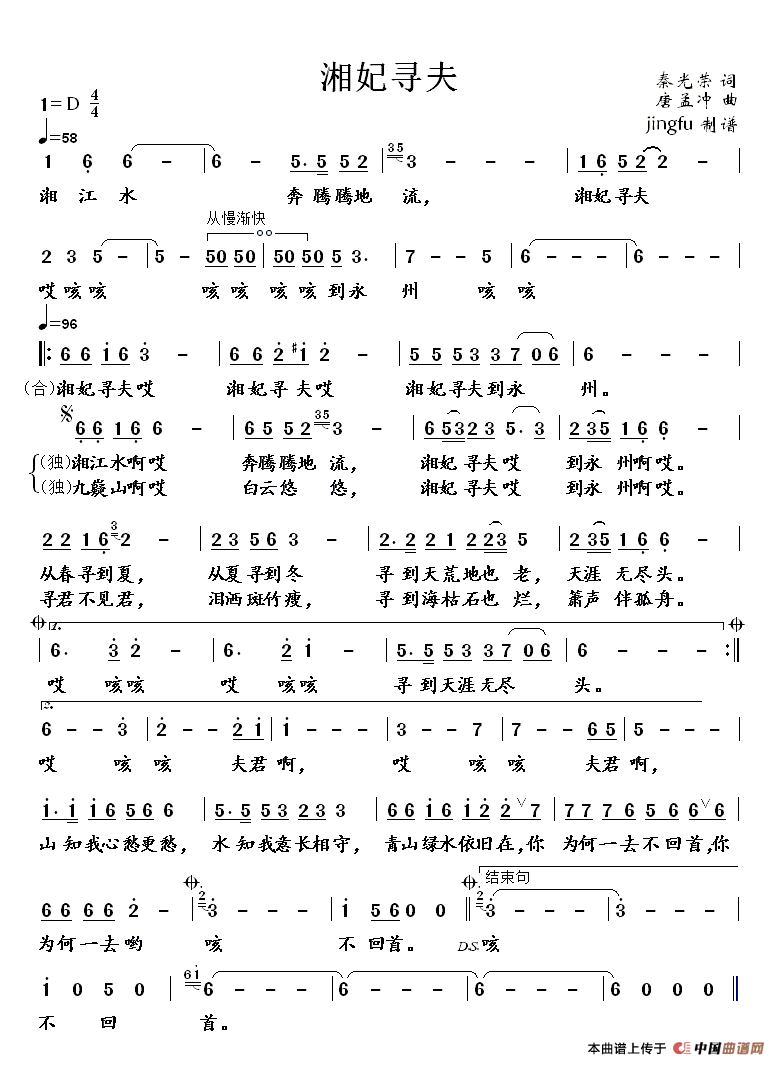 湘妃寻夫
秦光荣 词
唐孟冲 曲
jingfu 制谱
1=D 4/4
♩=58
1 6 6 - | 6 - 5. 5 5 2 | 35 3 - - | 1 6 5 2 2 - |
湘 江 水 奔 腾腾地 流， 湘妃寻夫
从慢渐快
2 3 5 - | 5 - 50 50 | 50 50 5 3. | 7 - - 5 | 6 - - - | 6 - - - |
哎 咳 咳 咳 咳 咳 咳到永 州 咳 咳
♩=96
‖: 6 6 1 6 3 - | 6 6 2 #1 2 - | 5 5 5 3 3 7 0 6 | 6 - - - |
（合）湘妃寻夫哎 湘妃寻 夫哎 湘妃寻夫到永 州。
6 6 1 6 6 - | 6 5 5 2 35 3 - | 6 5 3 2 3 5. 3 | 2 3 5 1 6 6 - |
（独）湘江水啊哎 奔腾腾地 流， 湘妃 寻夫哎 到永 州啊哎。
（独）九嶷山啊哎 白云悠 悠， 湘妃 寻夫哎 到永 州啊哎。
2 2 1 6 3 2 - | 2 3 5 6 3 - | 2. 2 2 1 2 2 3 5 | 2 3 5 1 6 6 - |
从春寻到夏， 从夏寻到冬 寻 到天荒地也 老， 天涯 无尽头。
寻君不见君， 泪洒斑竹瘦， 寻 到海枯石也 烂， 箫声 伴孤舟。
1.
| 6. 3 2 - | 6. 2 1 - | 5. 5 5 3 3 7 0 6 | 6 - - - :‖
哎 咳咳 哎 咳咳 寻 到天涯无尽 头。
2.
6 - - 3 | 2 - - 2 1 | 1 - - - | 3 - - 7 | 7 - - 6 5 | 5 - - - |
哎 咳 咳 夫君 啊， 哎 咳 咳 夫君啊，
1. 1 1 6 5 6 6 | 5. 5 5 3 2 3 3 | 6 6 1 6 1 2 2 ∨ 7 | 7 7 7 6 5 6 6 ∨ 6 |
山 知我心愁更愁， 水 知我意长相守， 青山绿水依旧在，你 为何一去不回首，你
结束句
6 6 6 6 2 - | 2 3 - - - | 1 5 6 0 0 ‖ 2 3 - - - | 3 - - - |
为何一去哟 咳 不 回首。 D.S. 咳
1 0 5 0 | 61 6 - - - | 6 - - - | 6 - - - | 6 - - - ‖
不 回 首。
本曲谱上传于 中国曲谱网